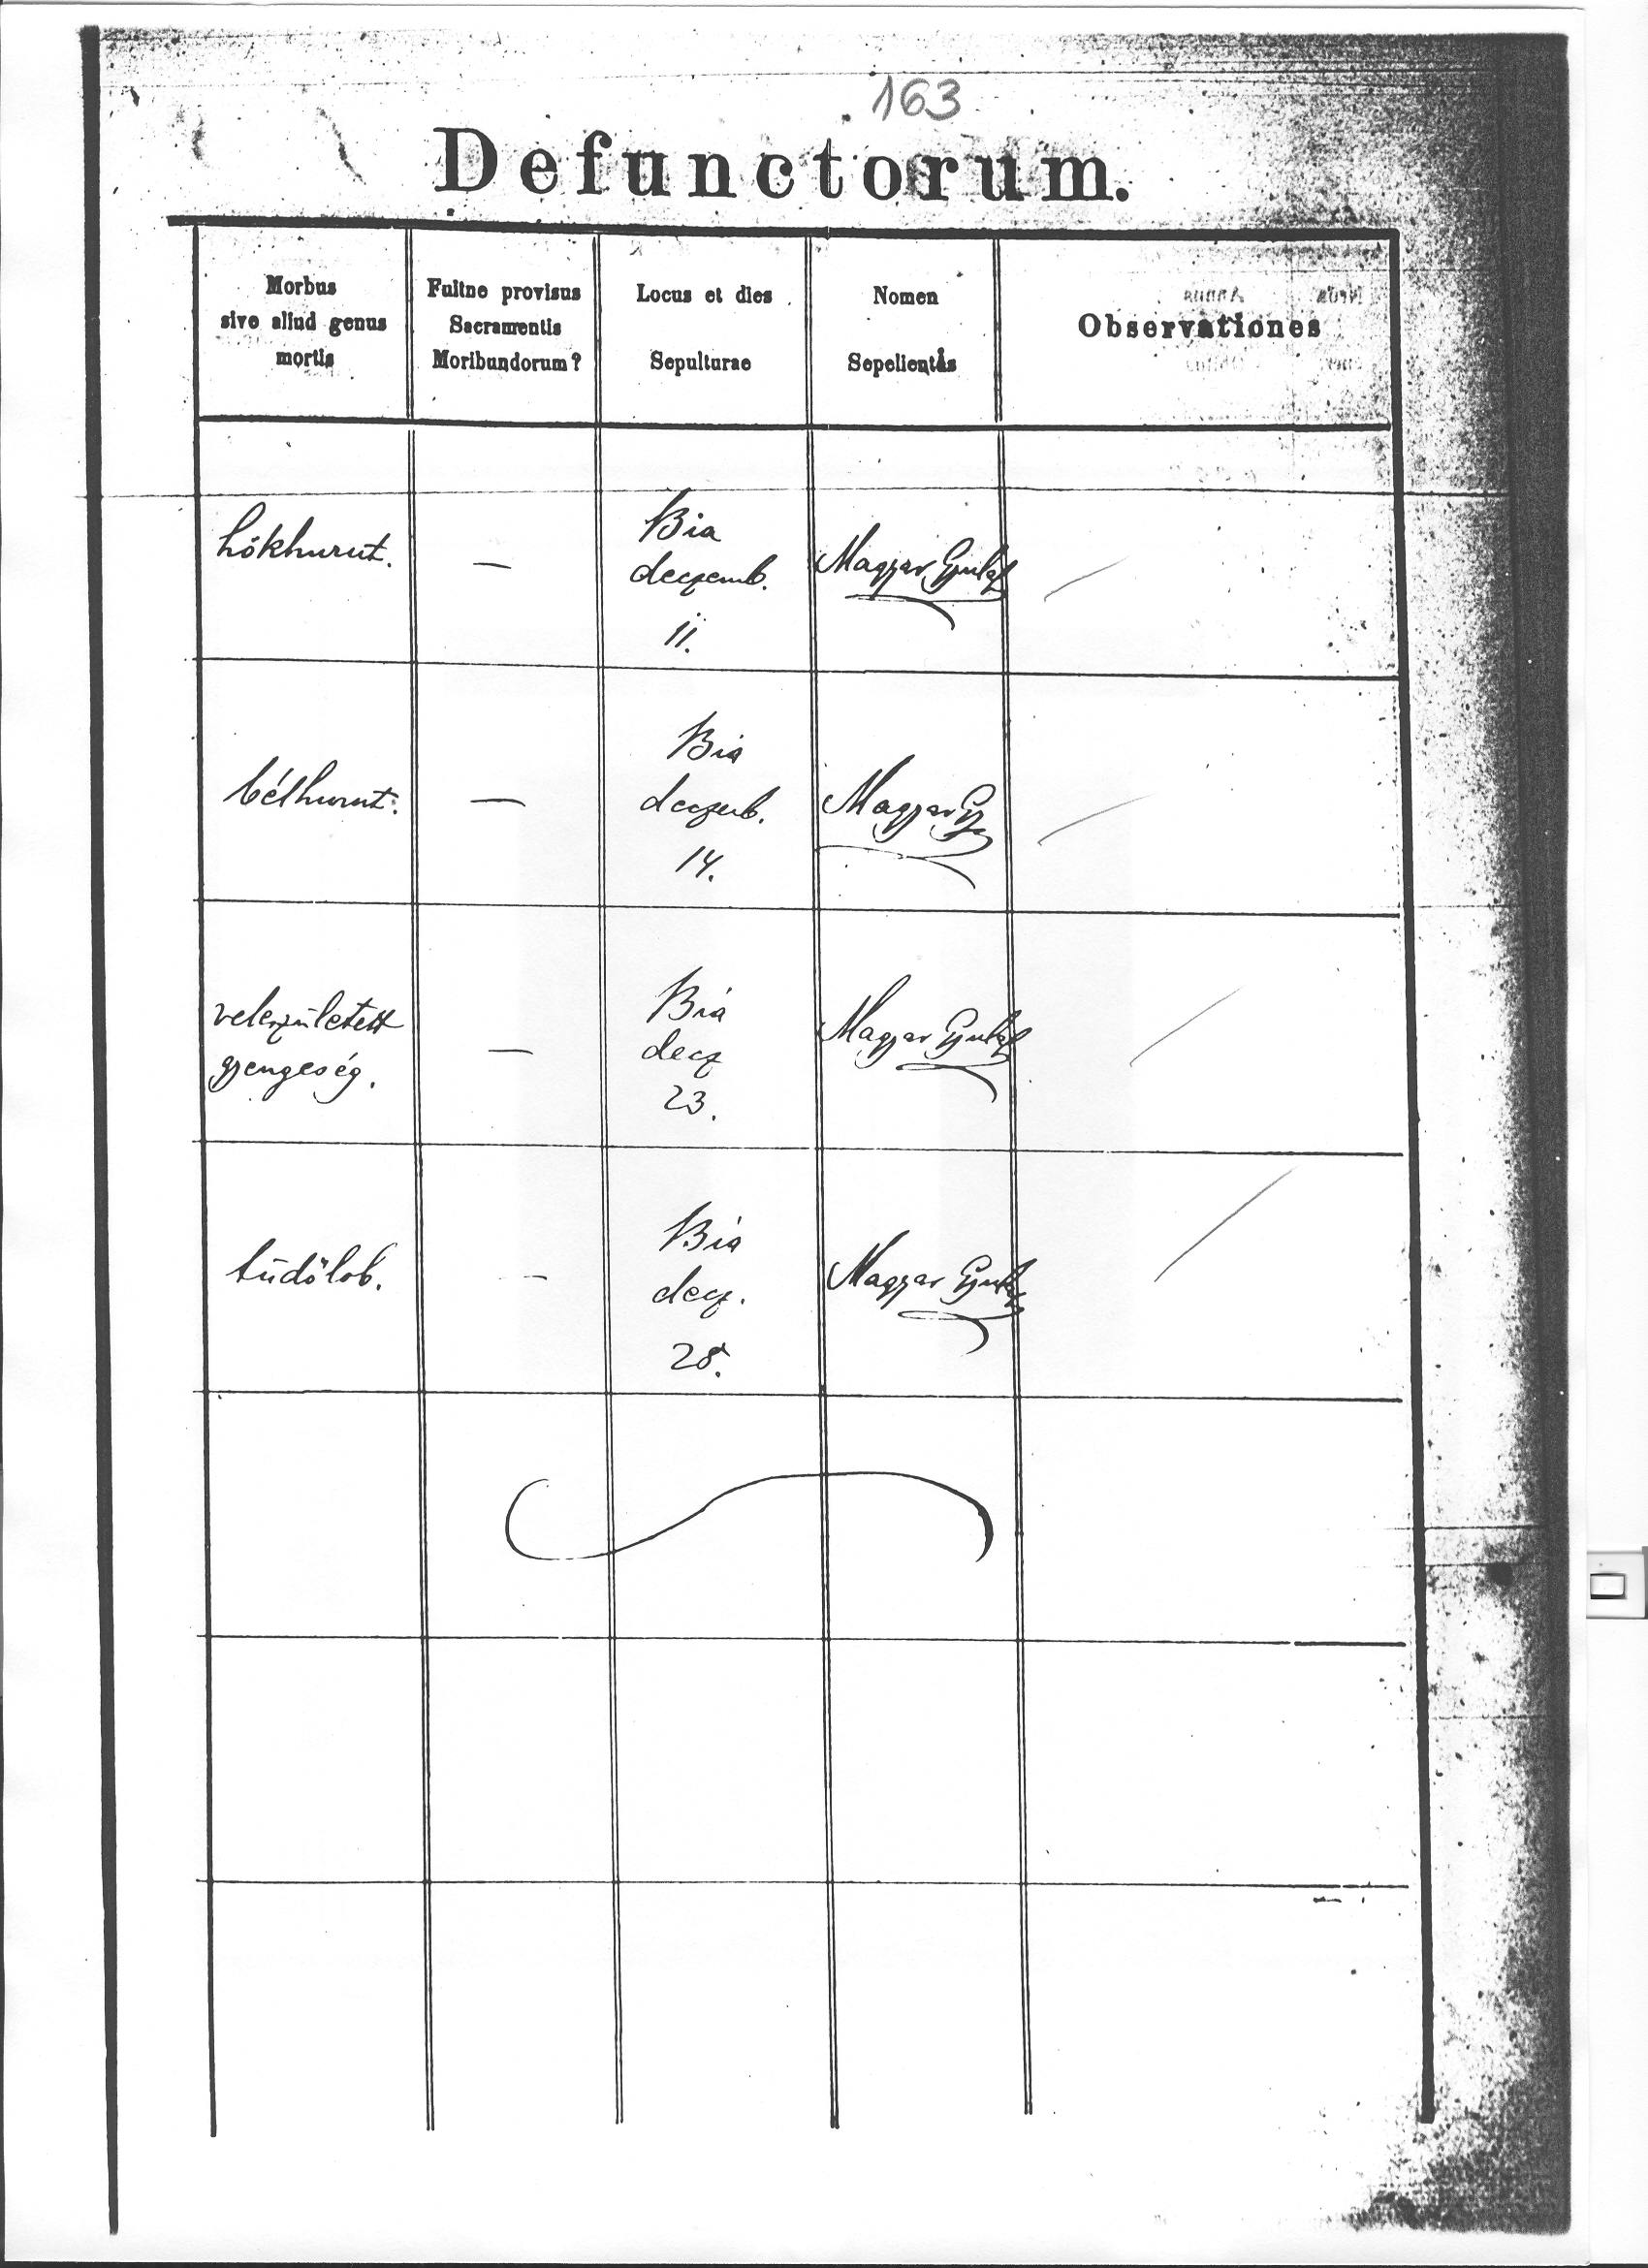 163
Defunctorum.
Morbus
sive aliud genus
mortis
Fuitne provisus
Sacramentis
Moribundorum?
Locus et dies
Sepulturae
Nomen
Sepelientis
Observationes
hökhurut.
—
Bia
deczemb.
11.
Magyar Gyula
bélhurut.
—
Bia
deczemb.
14.
Magyar Gy
veleszületett
gyengeség.
—
Bia
decz
23.
Magyar Gyula
tüdőlob.
—
Bia
decz.
28.
Magyar Gyula